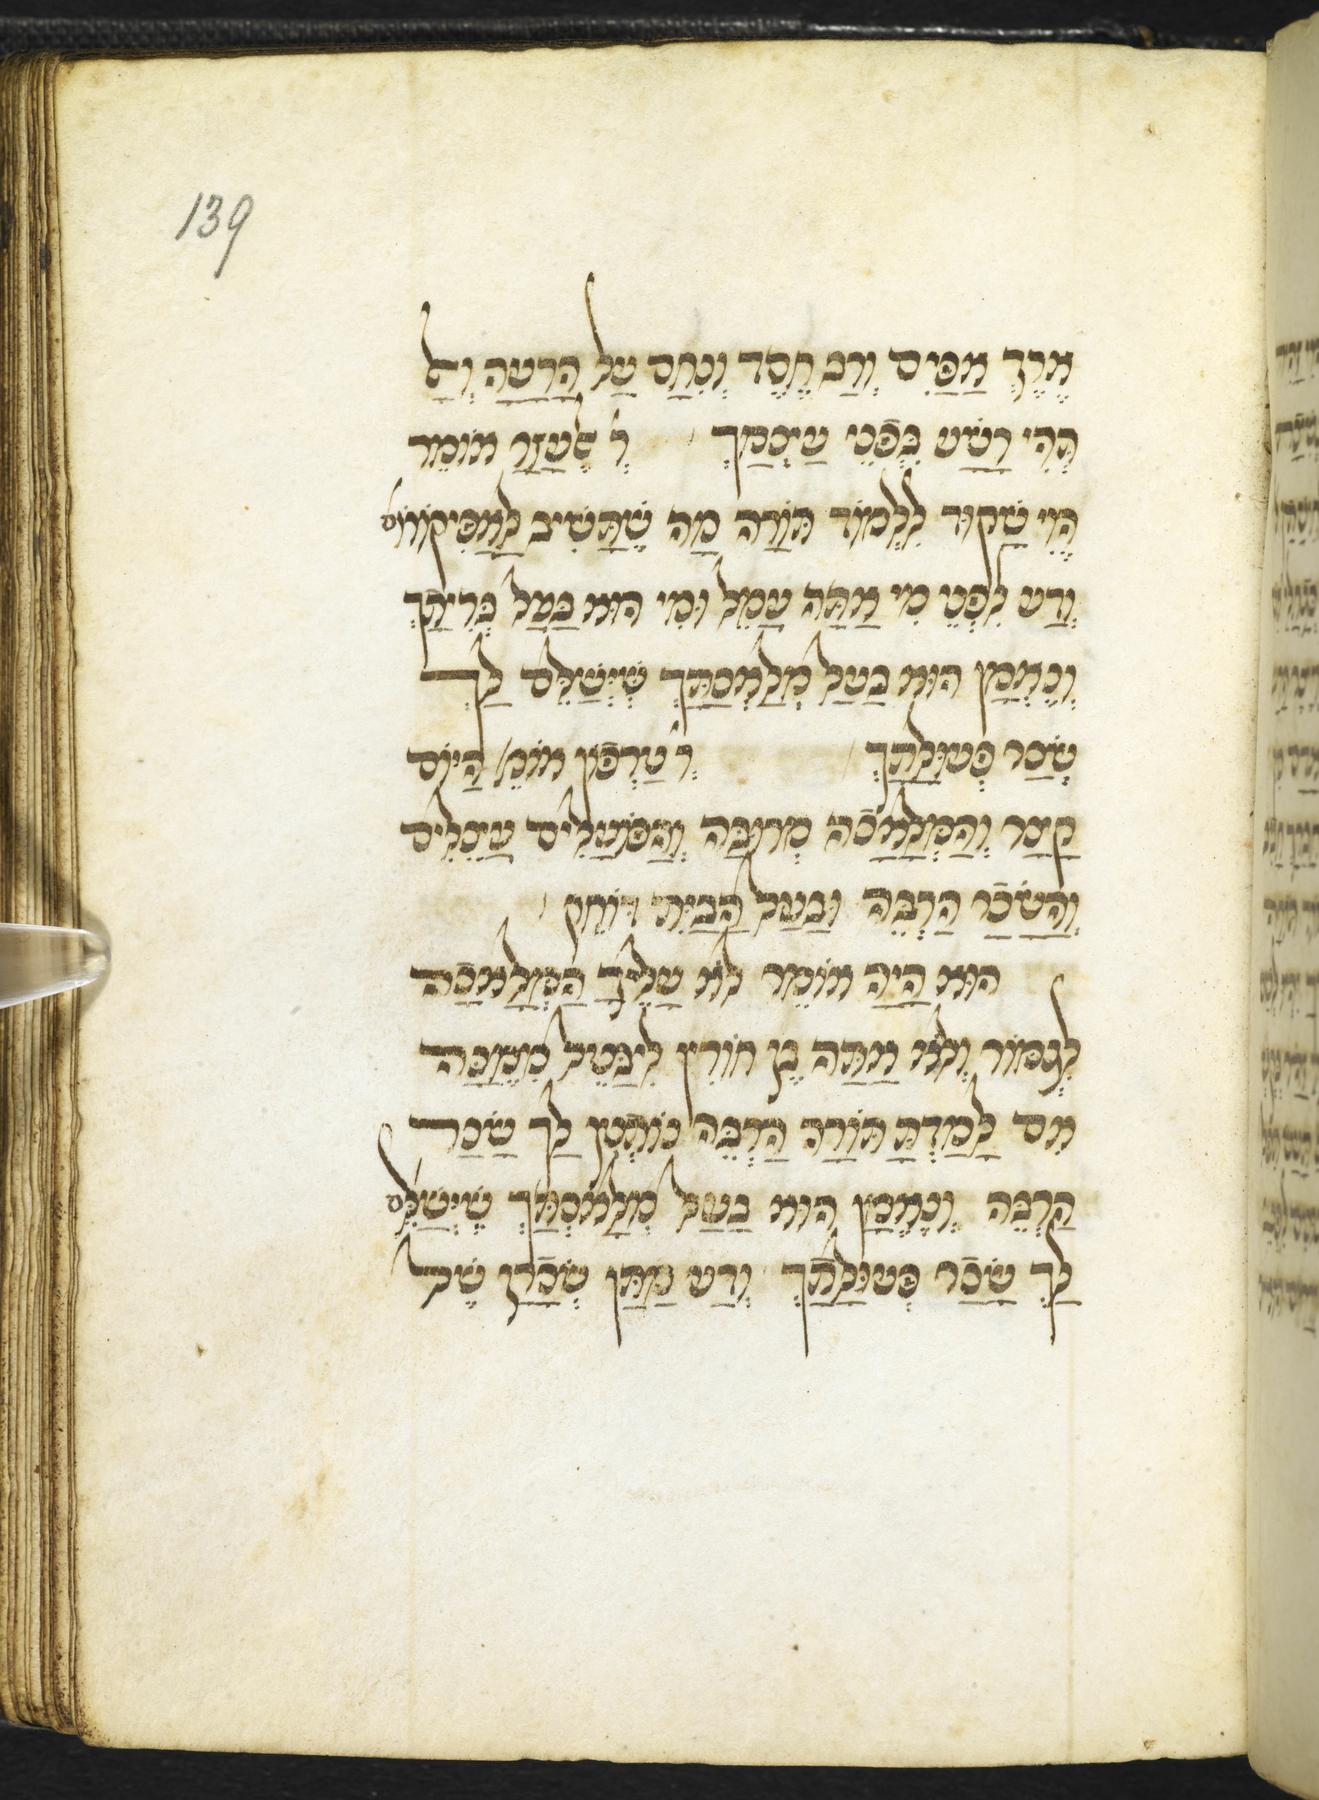 139
אֶרֶךְ אַפַּיִם וְרַב חֶסֶד וְנִחַם עַל הָרָעָה וְאַל
תְּהִי רָשָׁע בִּפְנֵי עַצְמָךְ ר' אֶלְעָזָר אוֹמֵר
הֱוֵי שָׁקוּד לִלְמוֹד תּוֹרָה מַה שֶׁתָּשִׁיב לָאַפִּיקוֹרוֹס
וְדַע לִפְנֵי מִי אַתָּה עָמֵל וּמִי הוּא בַּעַל בְּרִיתָךְ
וְנֶאֱמָן הוּא בַּעַל מְלַאכְתָּךְ שֶׁיְּשַׁלֵּם לָךְ
שְׂכַר פְּעוּלָּתָךְ ר' טַרְפוֹן אוֹמֵ' הַיּוֹם
קָצָר וְהַמְּלָאכָה מְרוּבָּה וְהַפּוֹעֲלִים עֲצֵלִים
וְהַשָּׂכָר הַרְבֵּה וּבַעַל הַבַּיִת דּוֹחֵק
הוּא הָיָה אוֹמֵר לֹא עָלֶיךָ הַמְּלָאכָה
לִגְמוֹר וְלֹא אַתָּה בֶן חוֹרִין לִיבָּטֵל מִמֶּנָּה
אִם לָמַדְתָּ תּוֹרָה הַרְבֵּה נוֹתְנִין לָךְ שָׂכָר
הַרְבֵּה וְנֶאֱמָן הוּא בַּעַל מְלַאכְתָּךְ שֶׁיְּשַׁלֵּם
לָךְ שְׂכַר פְּעוּלָּתָךְ וְדַע מַתַּן שְׂכָרָן שֶׁל